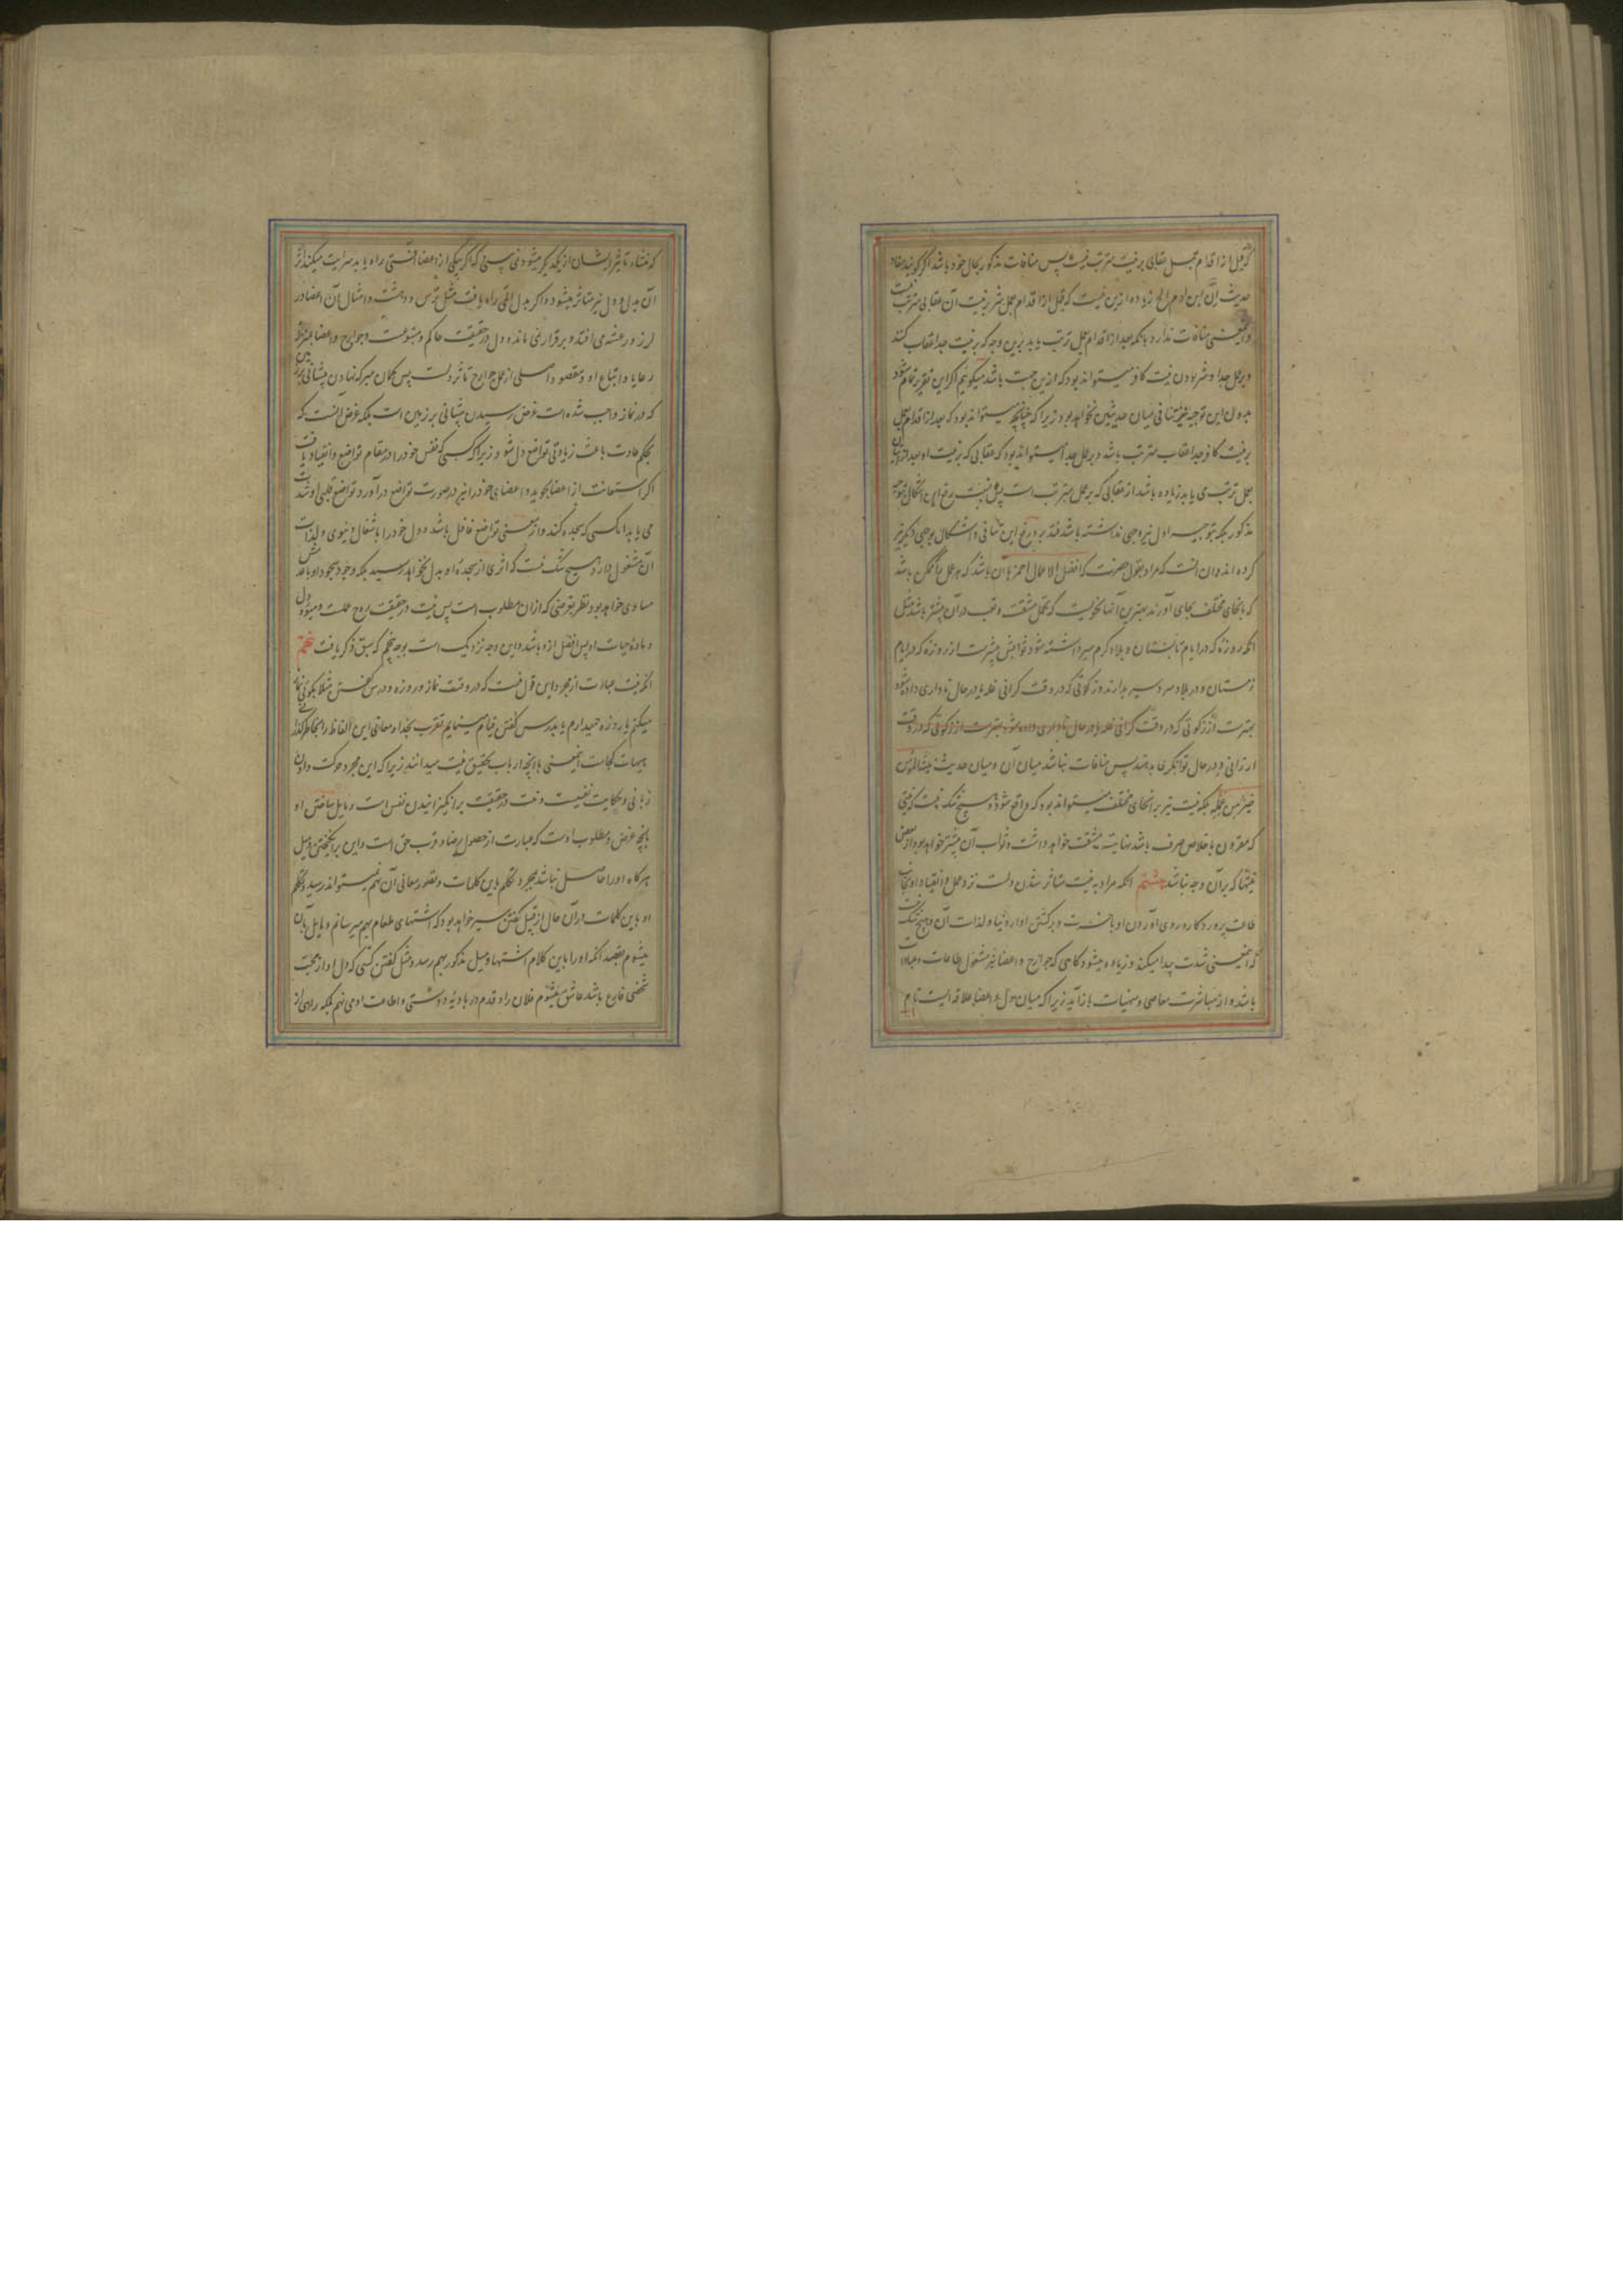 که قبل از اقدام بعمل عقابی بر نیت مترتب نیست پس منافات مذکور بحال خود باشد اگر گویند مفاد
حدیث ان ابن ادم الخ زیاده ازین نیست که قبل از اقدام بعمل شر بر نیت آن عقابی مترتب نیست
و این معنی منافات ندارد با آنکه بعد از اقدام بعمل ترتب یابد برین وجه که بر نیت جدا عقاب کنند
و بر عمل جدا و شر بودن نیت کافر میتواند بود که ازین جهت باشد میگوئیم اگر این تقریر تمام شود
بدون این توجیه نیز تنافی میان حدیثین نخواهد بود زیرا که چنانچه میتواند بود که بعد از اقدام بعمل
بر نیت کافر جدا عقاب مترتب باشد و بر عمل جدا میتواند بود که عقابی که بر نیت او بعد از اتیان
بعمل ترتب می یابد زیاده باشد از عقابی که بر عمل مترتب است پس نسبت رفع این اشکال بتوجیه
مذکور بلکه بتوجیه اول نیز وجهی نداشته باشد فتدبر و رفع این تنافی و اشکال بوجهی دیگر نیز
کرده اند و ان انست که مراد بقول حضرت که افضل الاعمال احمزها آن باشد که هر عمل که ممکن باشد
که بانحای مختلف بجای آورند بهترین آنها نحویست که تحمل مشقت و تعب در آن بیشتر باشد مثل
انکه روزه که در ایام تابستان و بلاد گرم سیر داشته شود ثوابش بیشتر است از روزه که در ایام
زمستان و در بلاد سردسیر بدارند و زکوتی که در وقت گرانی غله یا در حال ناداری داده شود
بهتر است از زکوتی که در وقت گرانی غله یا در حال ناداری داده شود بهتر است از زکوتی که در وقت
ارزانی و در حال توانگری بدهند پس منافات نباشد میان آن و میان حدیث نیة المؤمن
خیر من عمله بلکه نیت نیز بر انحای مختلف میتواند بود که واقع شود و هیچ شک نیست که نیتی
که مقرون باخلاص صرف باشد نهایت مشقت خواهد داشت و ثواب آن بیشتر خواهد بود از بعضی
نیتها که بر آن وجه نباشد هشتم انکه مراد به نیت متاثر شدن دلست نزد عمل و انقیاد او بجانب
طاعت پروردگار و روی آوردن او بآخرت و برگشتن او از دنیا و لذات آن و هیچ شک نیست
که این معنی شدت پیدا میکند و زیاده میشود گاهی که جوارح و اعضا نیز مشغول بطاعات و عبادات
باشد و از مباشرت معاصی و منهیات باز آید زیرا که میان دل و اعضا علاقه ایست تام
که منشاء تاثیر ایشان از یکدیگر میشود نمی بینی که اگر بیکی از اعضا آفتی راه یابد سرایت میکند اثر
آن بدل و دل نیز متاثر میشود و اگر بدل المی راه یافت مثل ترس و دهشت و امثال آن اعضا در
لرز و رعشه می افتد و برقرار نمی ماند و دل در حقیقت حاکم و متبوعست و جوارح و اعضا بمنزله
رعایا و اتباع او و مقصود اصلی از عمل جوارح تاثر دلست پس گمان مبر که نهادن پیشانی بر زمین
که در نماز واجب شده است غرض رسیدن پیشانی بر زمین است بلکه غرض آنست که
بحکم عادت باعث زیادتی تواضع دل شود زیرا که کسی که نفس خود را در مقام تواضع و انقیاد یافت
اگر استعانت از اعضا بجوید و اعضای خود را نیز در صورت تواضع در آورد تواضع قلبی او شدت
می یابد اما کسی که سجده کند و از معنی تواضع غافل باشد و دل خود را باشغال دنیوی و لذات
آن مشغول دارد هیچ شک نیست که اثری از سجده او بدل نخواهد رسید بلکه وجود سجود او با عدمش
مساوی خواهد بود نظر بغرضی که ازان مطلوب است پس نیت در حقیقت روح عملست و میوه دل
و ماده حیات او پس افضل ازو باشد و این وجه نزدیک است بوجه پنجم که سبق ذکر یافت نهم
انکه نیت عبارت از مجرد این قول نیست که در وقت نماز و روزه و درس گفتن مثلا بگوئی نماز
میکنم یا روزه میدارم یا بدرس گفتن قیام مینمایم تقرب بخدا و معانی این الفاظ را بخاطر گذرانی
هیهات کجاست این معنی با انچه ارباب تحقیق نیت میدانند زیرا که این مجرد حرکت دادن
زبانی و حکایت نفسیست و نیت در حقیقت برانگیزانیدن نفس است و مایل ساختن او
بانچه غرض و مطلوب اوست که عبارت از حصول رضا و قرب حق است و این برانگیختن و میل
هرگاه او را حاصل نباشد بمجرد تکلم باین کلمات و تصور معانی آن بهم نمیتواند رسید و تکلم
او باین کلمات در آن حال از قبیل گفتن سیر خواهد بود که اشتهای طعام بهم میرسانم و مایل بآن
میشوم بقصد انکه او را باین کلام اشتها و میل مذکور بهم رسد و مثل گفتن کسی که دل او از محبت
شخصی فارغ باشد عاشق میشوم فلان را و قدم در بادیه دوستی و اطاعت او می نهم بلکه راهی از